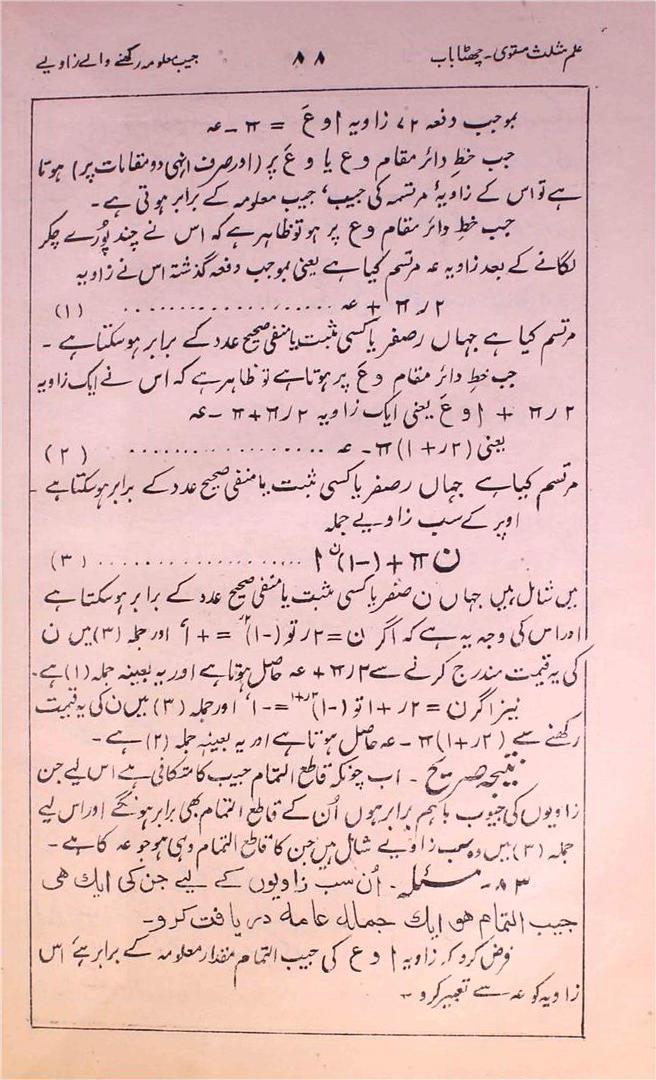 علم مثلث مستوی۔ چھٹا باب ۸۸ جیب معلومہ رکھنے والے زاویے
بموجب دفعہ ۷۲ زاویہ ا و عَ = π - عہ
جب خطِ دائر مقام و ع یا و عَ پر (اور صرف انہی دو مقامات پر) ہوتا
ہے تو اس کے زاویۂ مرتسمہ کی جیب، جیب معلومہ کے برابر ہوتی ہے۔
جب خطِ دائر مقام و ع پر ہو تو ظاہر ہے کہ اس نے چند پورے چکر
لگانے کے بعد زاویہ عہ مرتسم کیا ہے یعنی بموجب دفعہ گذشتہ اس نے زاویہ
۲ر π + عہ .................... (۱)
مرتسم کیا ہے جہاں ر صفر یا کسی مثبت یا منفی صحیح عدد کے برابر ہو سکتا ہے۔
جب خطِ دائر مقام و عَ پر ہوتا ہے تو ظاہر ہے کہ اس نے ایک زاویہ
۲ر π + ا و عَ یعنی ایک زاویہ ۲ر π + π - عہ
یعنی (۲ر + ۱) π - عہ .................... (۲)
مرتسم کیا ہے جہاں ر صفر یا کسی مثبت یا منفی صحیح عدد کے برابر ہو سکتا ہے۔
اوپر کے سب زاویے جملہ
ن π + (-۱)^ن ا .................... (۳)
میں شامل ہیں جہاں ن صفر یا کسی مثبت یا منفی صحیح عدد کے برابر ہو سکتا ہے
اور اس کی وجہ یہ ہے کہ اگر ن = ۲ر تو (-۱)^۲ر = + ۱، اور جملہ (۳) میں ن
کی یہ قیمت مندرج کرنے سے ۲ر π + عہ حاصل ہوتا ہے اور یہ بعینہ جملہ (۱) ہے۔
نیز اگر ن = ۲ر + ۱ تو (-۱)^۲ر+۱ = - ۱، اور جملہ (۳) میں ن کی یہ قیمت
رکھنے سے (۲ر + ۱) π - عہ حاصل ہوتا ہے اور یہ بعینہ جملہ (۲) ہے۔
نتیجہ صریح ۔ اب چونکہ قاطع التمام جیب کا متکافی ہے اس لیے جن
زاویوں کی جیوب باہم برابر ہوں اُن کے قاطع التمام بھی برابر ہونگے اور اس لیے
جملہ (۳) میں وہ سب زاویے شامل ہیں جن کا قاطع التمام وہی ہو جو عہ کا ہے۔
۸۳۔ مسئلہ ۔ اُن سب زاویوں کے لیے جن کی ایک ہی
جیب التمام ہو ایک جملہ عامہ دریافت کرو۔
فرض کرو کہ زاویہ ا و ع کی جیب التمام مقدار معلومہ کے برابر ہے، اس
زاویہ کو عہ سے تعبیر کرو۔